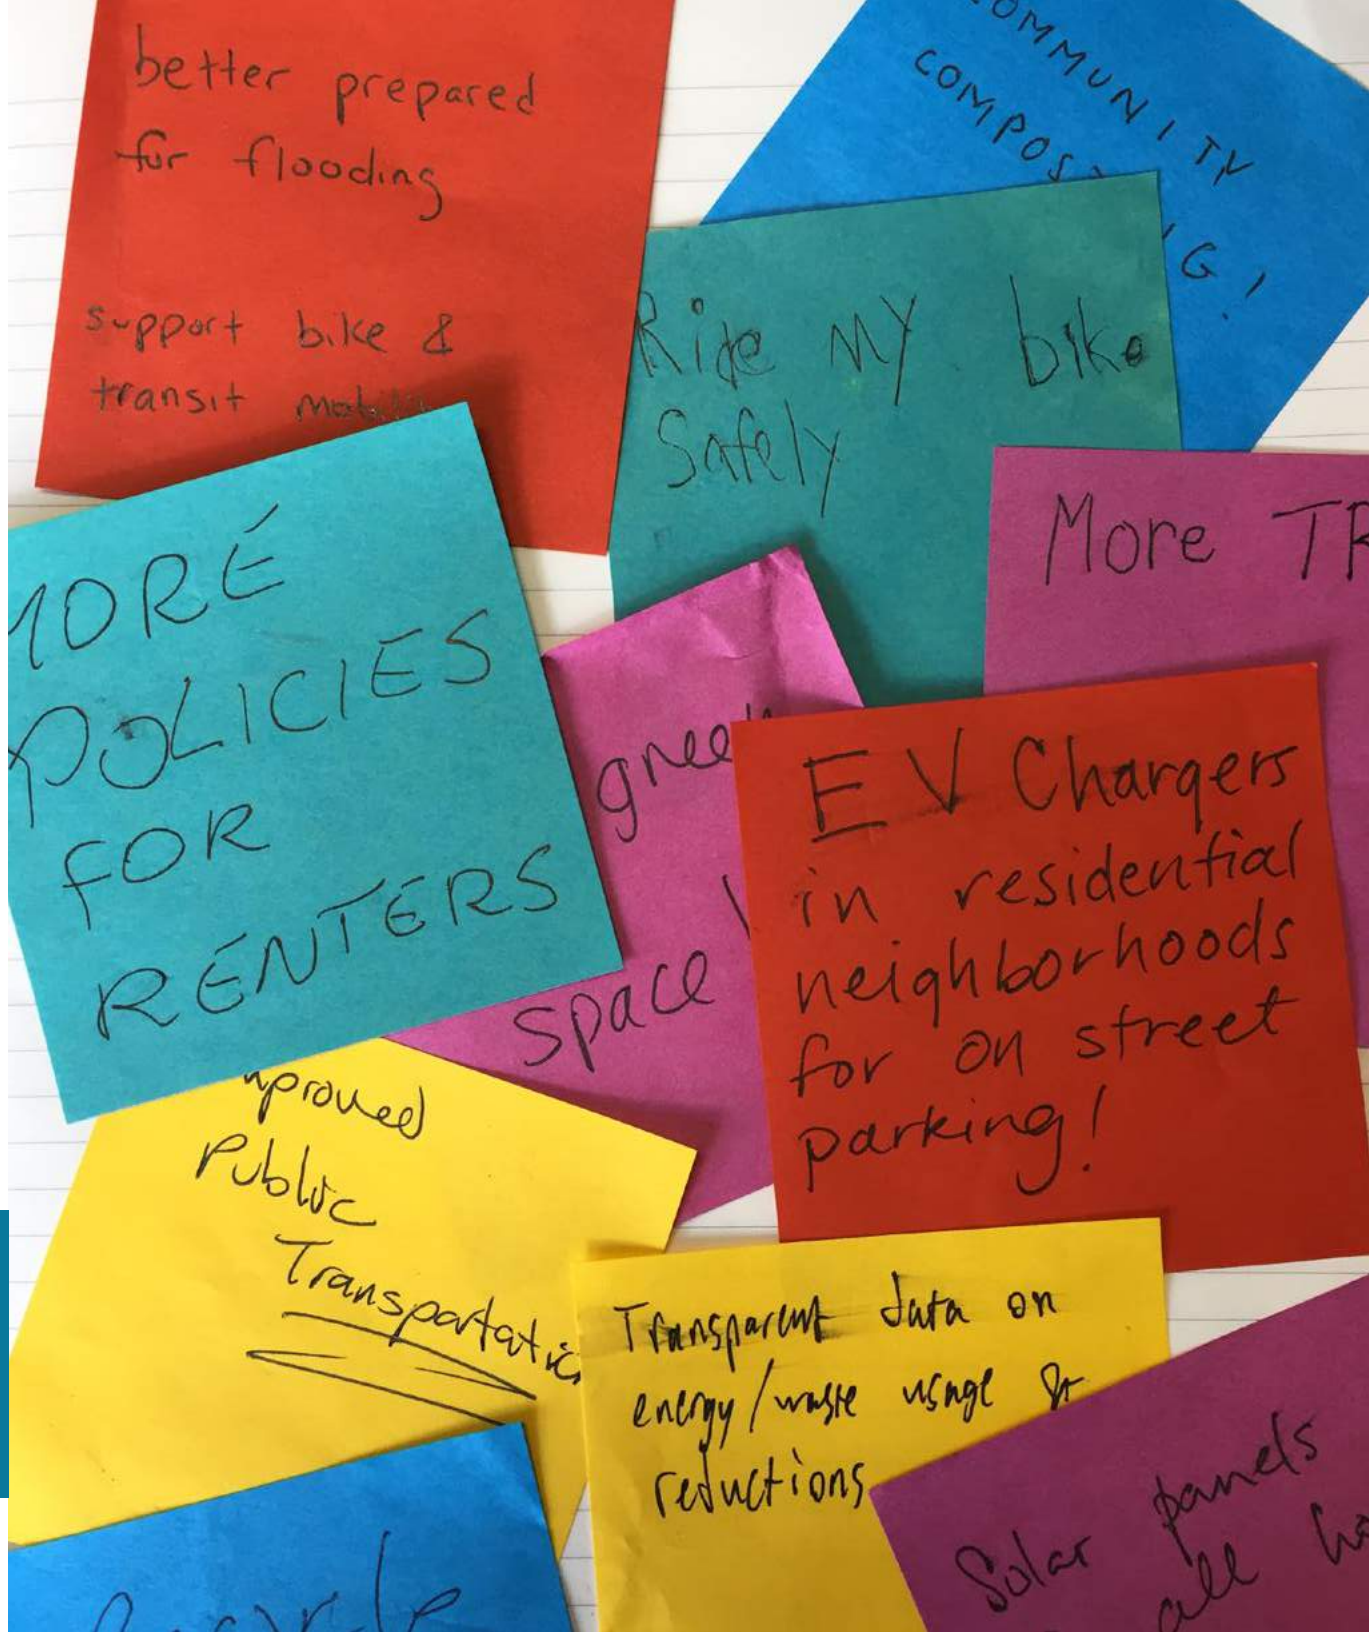 better prepared
for flooding
support bike &
transit
COMMUNITY
COMPOS
NG!
Ride MY bike
Safely
MORE
POLICIES
FOR
RENTERS
More TR
green
space
EV Chargers
in residential
neighborhoods
for on street
parking!
mproved
Public
Transportatio
Transparent data on
energy/waste usage &
reductions
Solar panels
all ho
Recycle